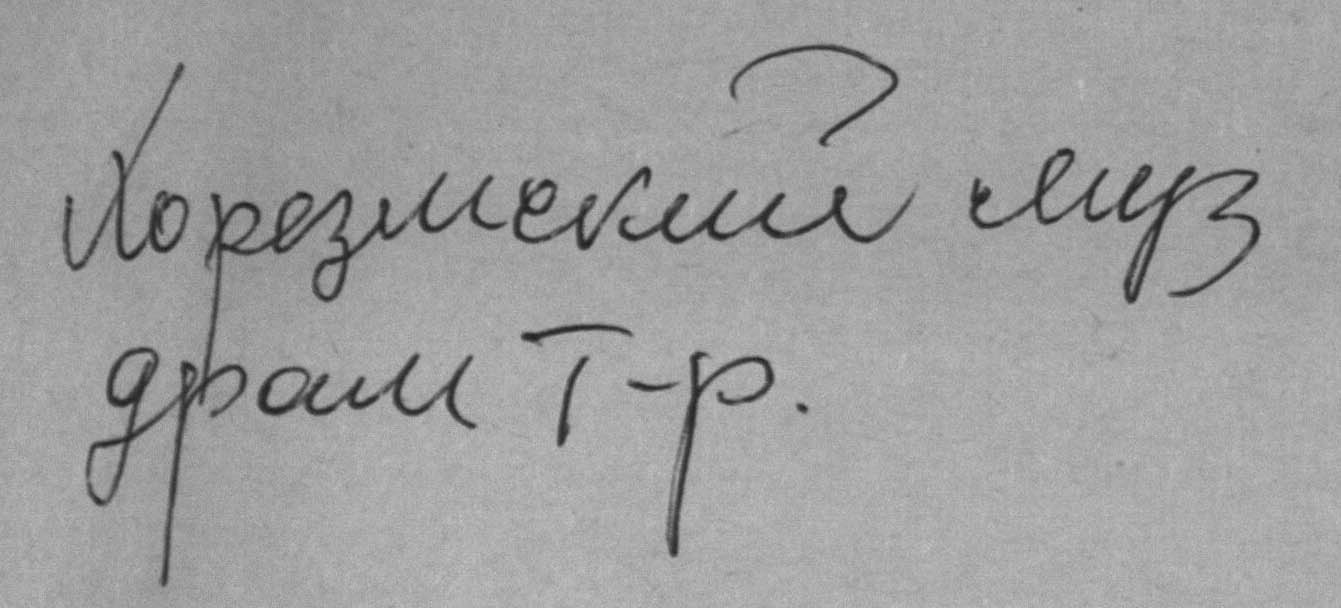 Хорезмский муз
драм Т-р.